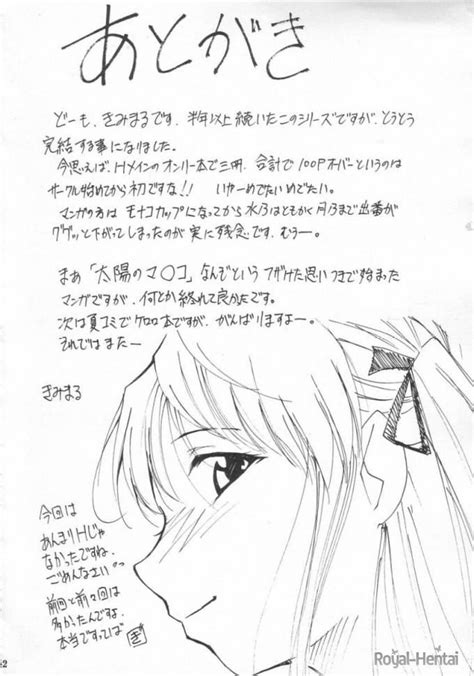 あとがき
どーも、きみまるです、半年以上続いたこのシリーズですが、とうとう
完結する事になりました。
今思えば、Hメインのオンリー本で三冊、合計で100Pオーバーというのは
サークル始めてから初ですな!! いやーめでたいめでたい。
マンガの方は モナコカップになってから 水乃はともかく月乃まで出番が
ググッと下がってしまったのが 実に残念です。むぅー。
まぁ「太陽のマ〇コ」なんぞという フザけた思いつきで始まった
マンガですが、何とか終れて良かたです。
次は夏コミでケロロ本ですが、がんばりますよー。
それでは また ー
きみまる
今回は
あんまりHじゃ
なかったですね、
ごめんなさい。。
前回と前々回は
多かたんですよ、
本当ですってば
ぎ
Royal-Hentai